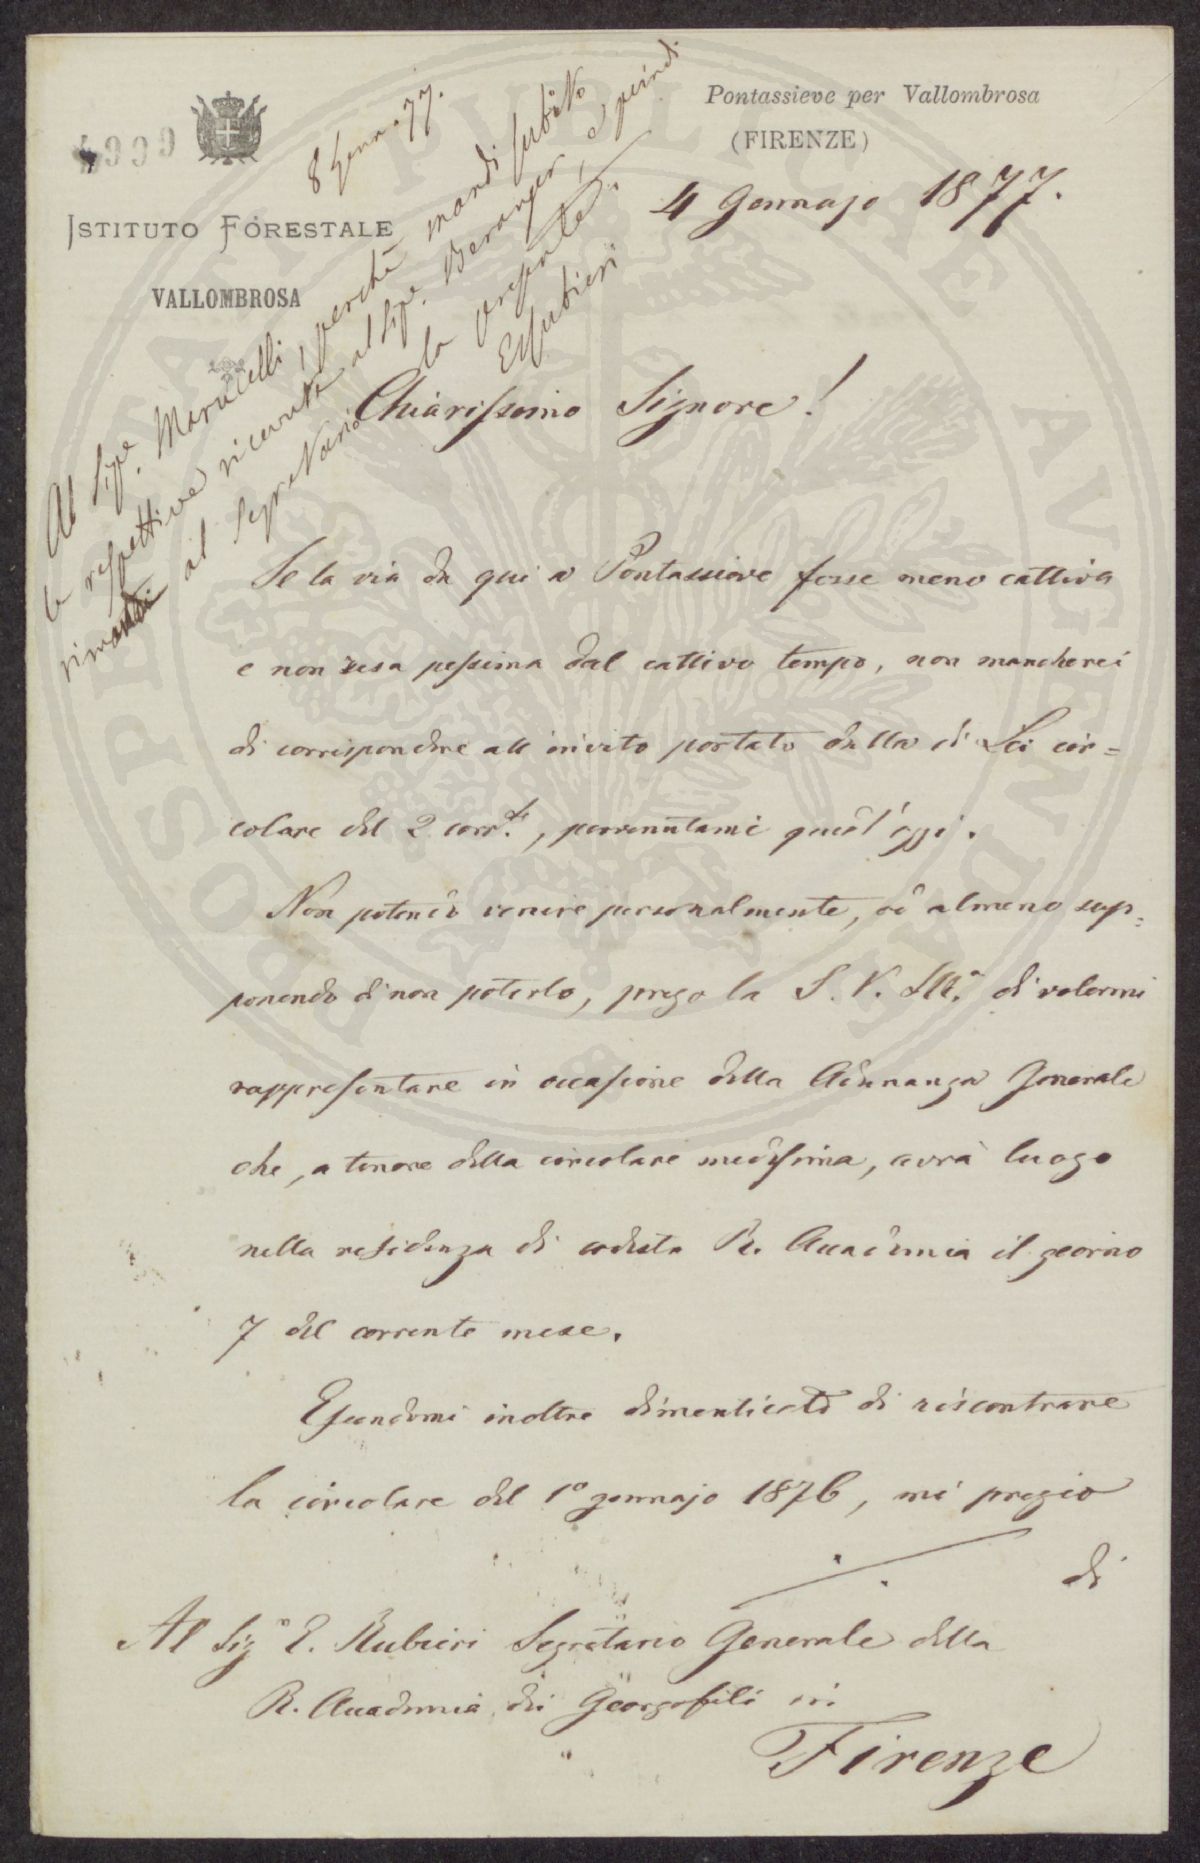 Pontassieve per Vallombrosa
(FIRENZE)
4999
ISTITUTO FORESTALE
VALLOMBROSA
4 Gennajo 1877.
8 Genn. 77.
Al Sig.e Marucelli, perchè mandi subito
le respettive ricevute al Sig.e Beranger, e quindi
rimandi al segretario la presente.
ERubieri
Chiarissimo Signore!
Se la via da qui a Pontassieve fosse meno cattiva
e non resa pessima dal cattivo tempo, non mancherei
di corrispondere all'invito portato dalla di Lei cir=
colare del 2 corr.te, pervenutami quest'oggi.
Non potendo venire personalmente, od almeno sup=
ponendo di non poterlo, prego la S. V. Ill.a di volermi
rappresentare in occasione della Adunanza Generale
che, a tenore della circolare medesima, avrà luogo
nella residenza di codesta R. Accademia il giorno
7 del corrente mese.
Essendomi inoltre dimenticato di riscontrare
la circolare del 1o gennajo 1876, mi pregio
di
Al Sig.r E. Rubieri Segretario Generale della
R. Accademia dei Georgofili in
Firenze
PROSPERITATI PVBLICAE AVGENDAE